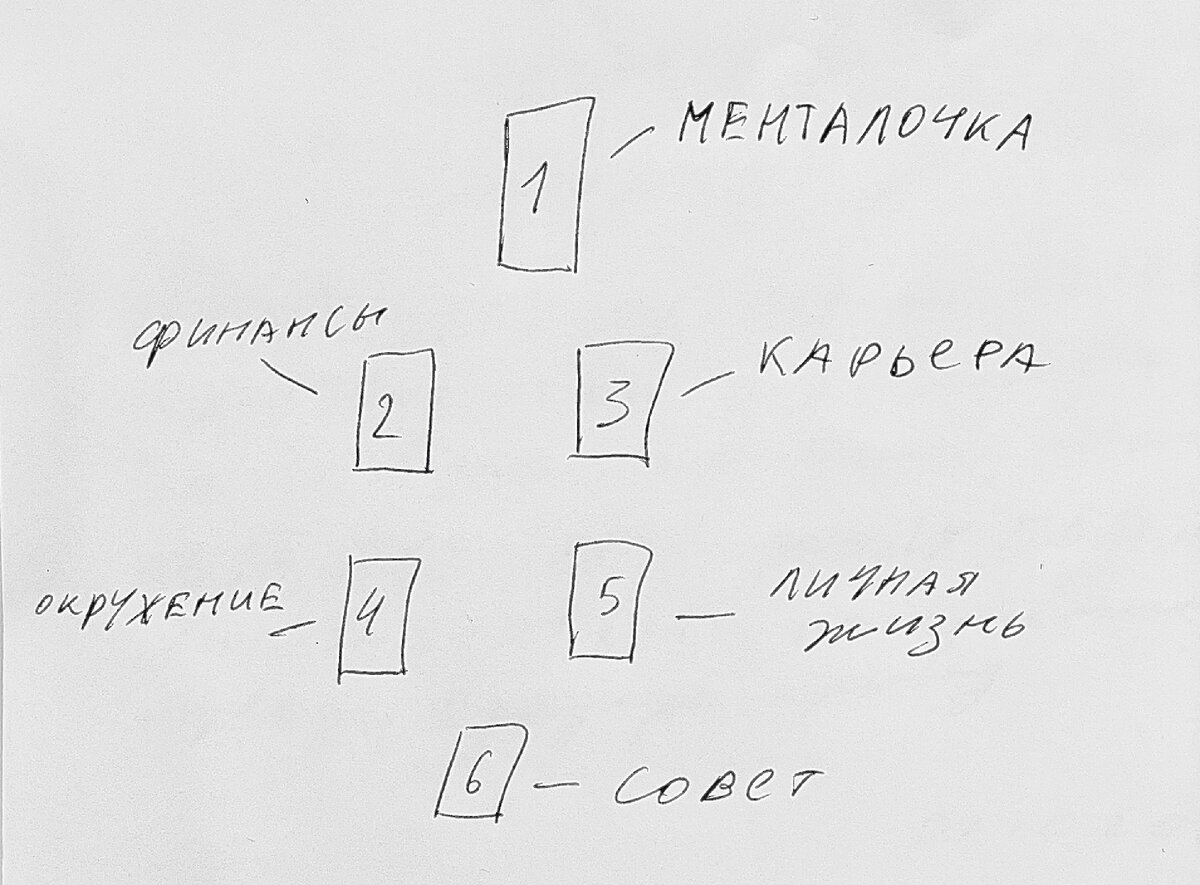 1
МЕНТАЛОЧКА
ФИНАНСЫ
2
3
КАРЬЕРА
ОКРУЖЕНИЕ
4
5
ЛИЧНАЯ
ЖИЗНЬ
6
СОВЕТ